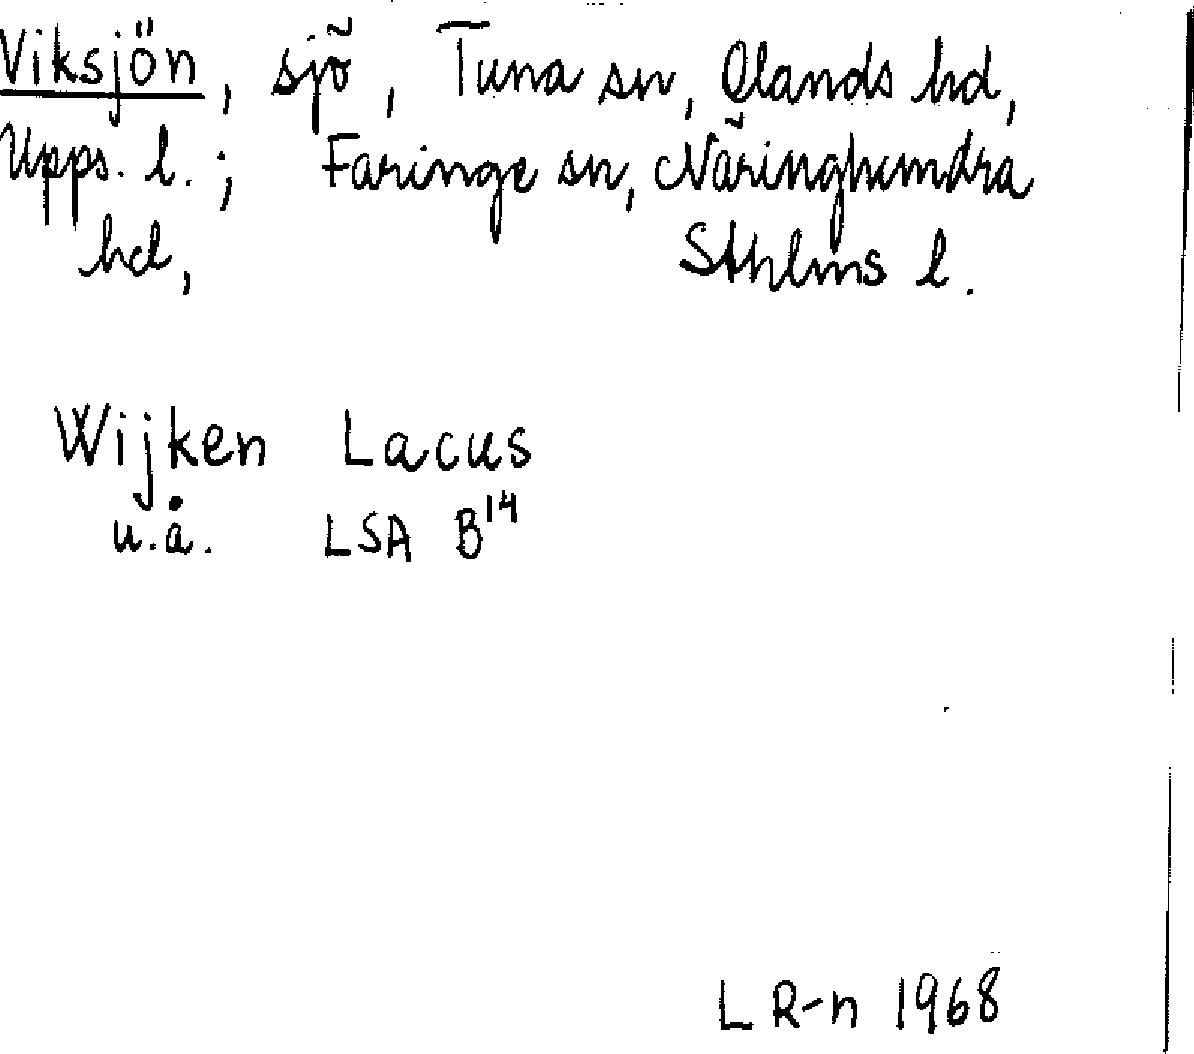 Viksjön, sjö, Tuna sn, Olands hd,
Upps. l.; Faringe sn, Näringhundra
hd, Sthlms l.
Wijken Lacus
u.å. LSA B14
L R-n 1968